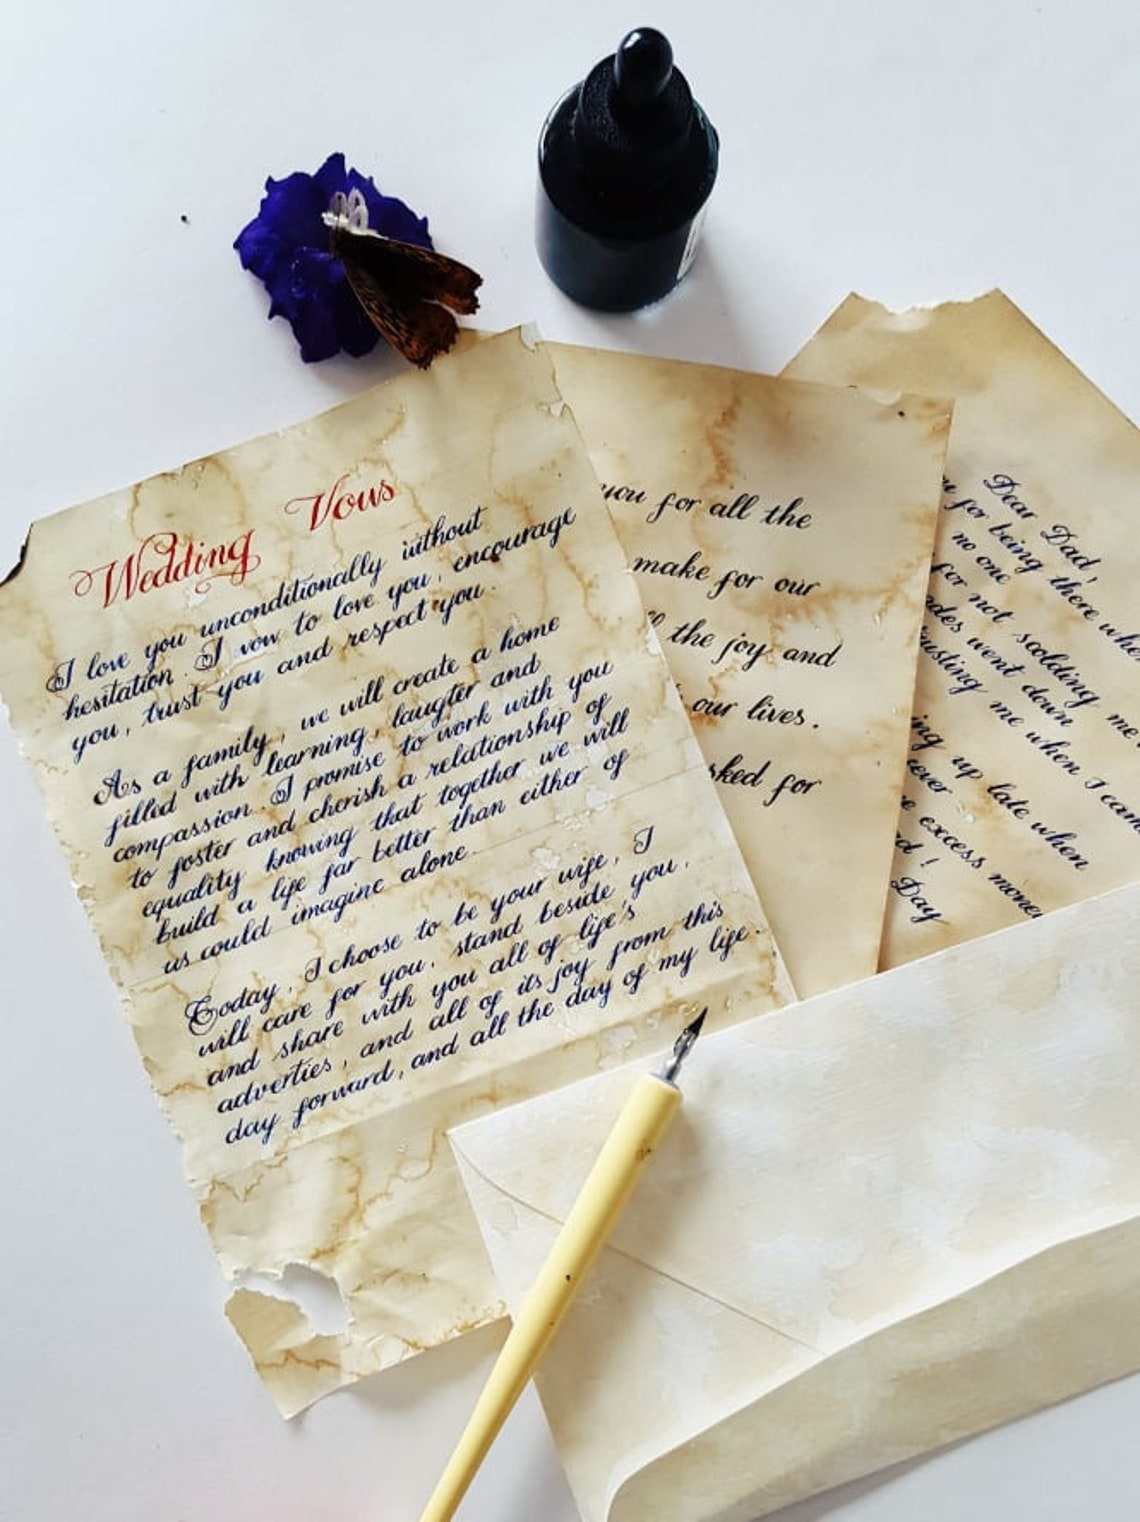 Wedding Vous
I love you unconditionally without
hesitation. I vow to love you, encourage
you, trust you and respect you.
As a family, we will create a home
filled with learning, laugter and
compassion. I promise to work with you
to foster and cherish a relationship of
equality knowing that together we will
build a life far better than either of
us could imagine alone.
Today, I choose to be your wife, I
will care for you, stand beside you,
and share with you all of life's
adverties, and all of its joy from this
day forward, and all the day of my life.
you for all the
make for our
the joy and
our lives.
for
Dear Dad,
for being there when
no one
for not scolding me
went down
me when I came
up late when
excess money
!
Day